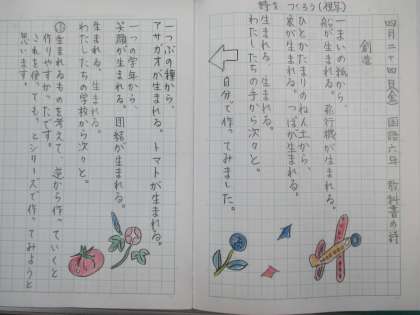 詩をつくろう(視写)
四月二十四日(金)国語六年 教科書の詩
創造
一まいの紙から、
船が生まれる。飛行機が生まれる。
ひとかたまりのねん土から、
象が生まれる。つぼが生まれる。
生まれる、生まれる。
わたしたちの手から次々と。
自分で作ってみました。
一つぶの種から、
アサガオが生まれる。トマトが生まれる。
一つの学年から、
笑顔が生まれる。団結が生まれる。
生まれる、生まれる。
わたしたちの学校から次々と。
生まれるものを考えて、逆から作っていくと
作りやすかったです。
これを使って、もっとシリーズで作ってみようと
思います。